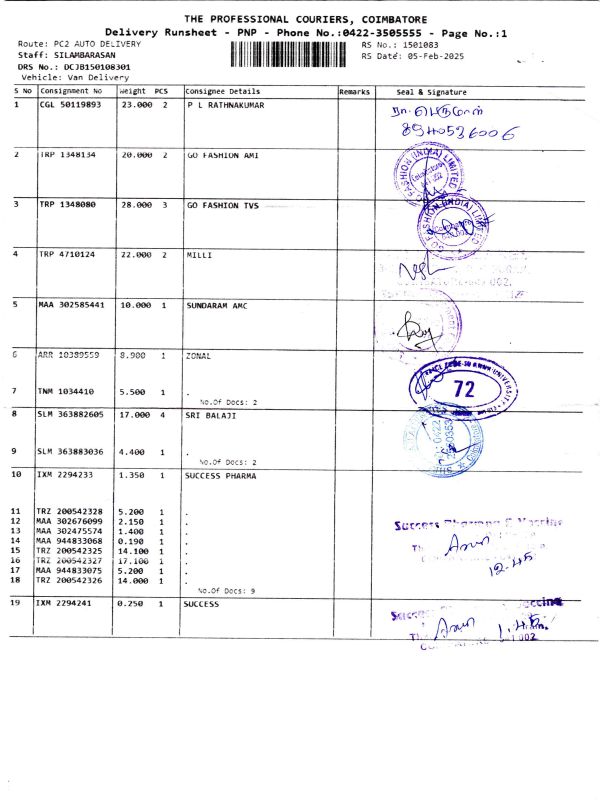 THE PROFESSIONAL COURIERS, COIMBATORE
Delivery Runsheet - PNP - Phone No.:0422-3505555 - Page No.:1
Route: PC2 AUTO DELIVERY RS No.: 1501083
Staff: SILAMBARASAN RS Date: 05-Feb-2025
DRS No.: DCJB150108301
Vehicle: Van Delivery
S No Consignment No Weight PCS Consignee Details Remarks Seal & Signature
1 CGL 50119893 23.000 2 P L RATHNAKUMAR
8940536006
2 TRP 1348134 20.000 2 GO FASHION AMI
GO FASHION (INDIA) LIMITED
3 TRP 1348080 28.000 3 GO FASHION TVS
GO FASHION (INDIA) LIMITED
4 TRP 4710124 22.000 2 MILLI
5 MAA 302585441 10.000 1 SUNDARAM AMC
6 ARR 10389559 8.900 1 ZONAL
7 TNM 1034410 5.500 1 .
No.Of Docs: 2
72
8 SLM 363882605 17.000 4 SRI BALAJI
9 SLM 363883036 4.400 1 .
No.Of Docs: 2
10 IXM 2294233 1.350 1 SUCCESS PHARMA
11 TRZ 200542328 5.200 1 .
12 MAA 302676099 2.150 1 .
Success Pharma & Vaccine
13 MAA 302475574 1.400 1 .
14 MAA 944833068 0.190 1 .
15 TRZ 200542325 14.100 1 .
16 TRZ 200542327 17.100 1 .
12-45
17 MAA 944833075 5.200 1 .
18 TRZ 200542326 14.000 1 .
No.Of Docs: 9
19 IXM 2294241 0.250 1 SUCCESS